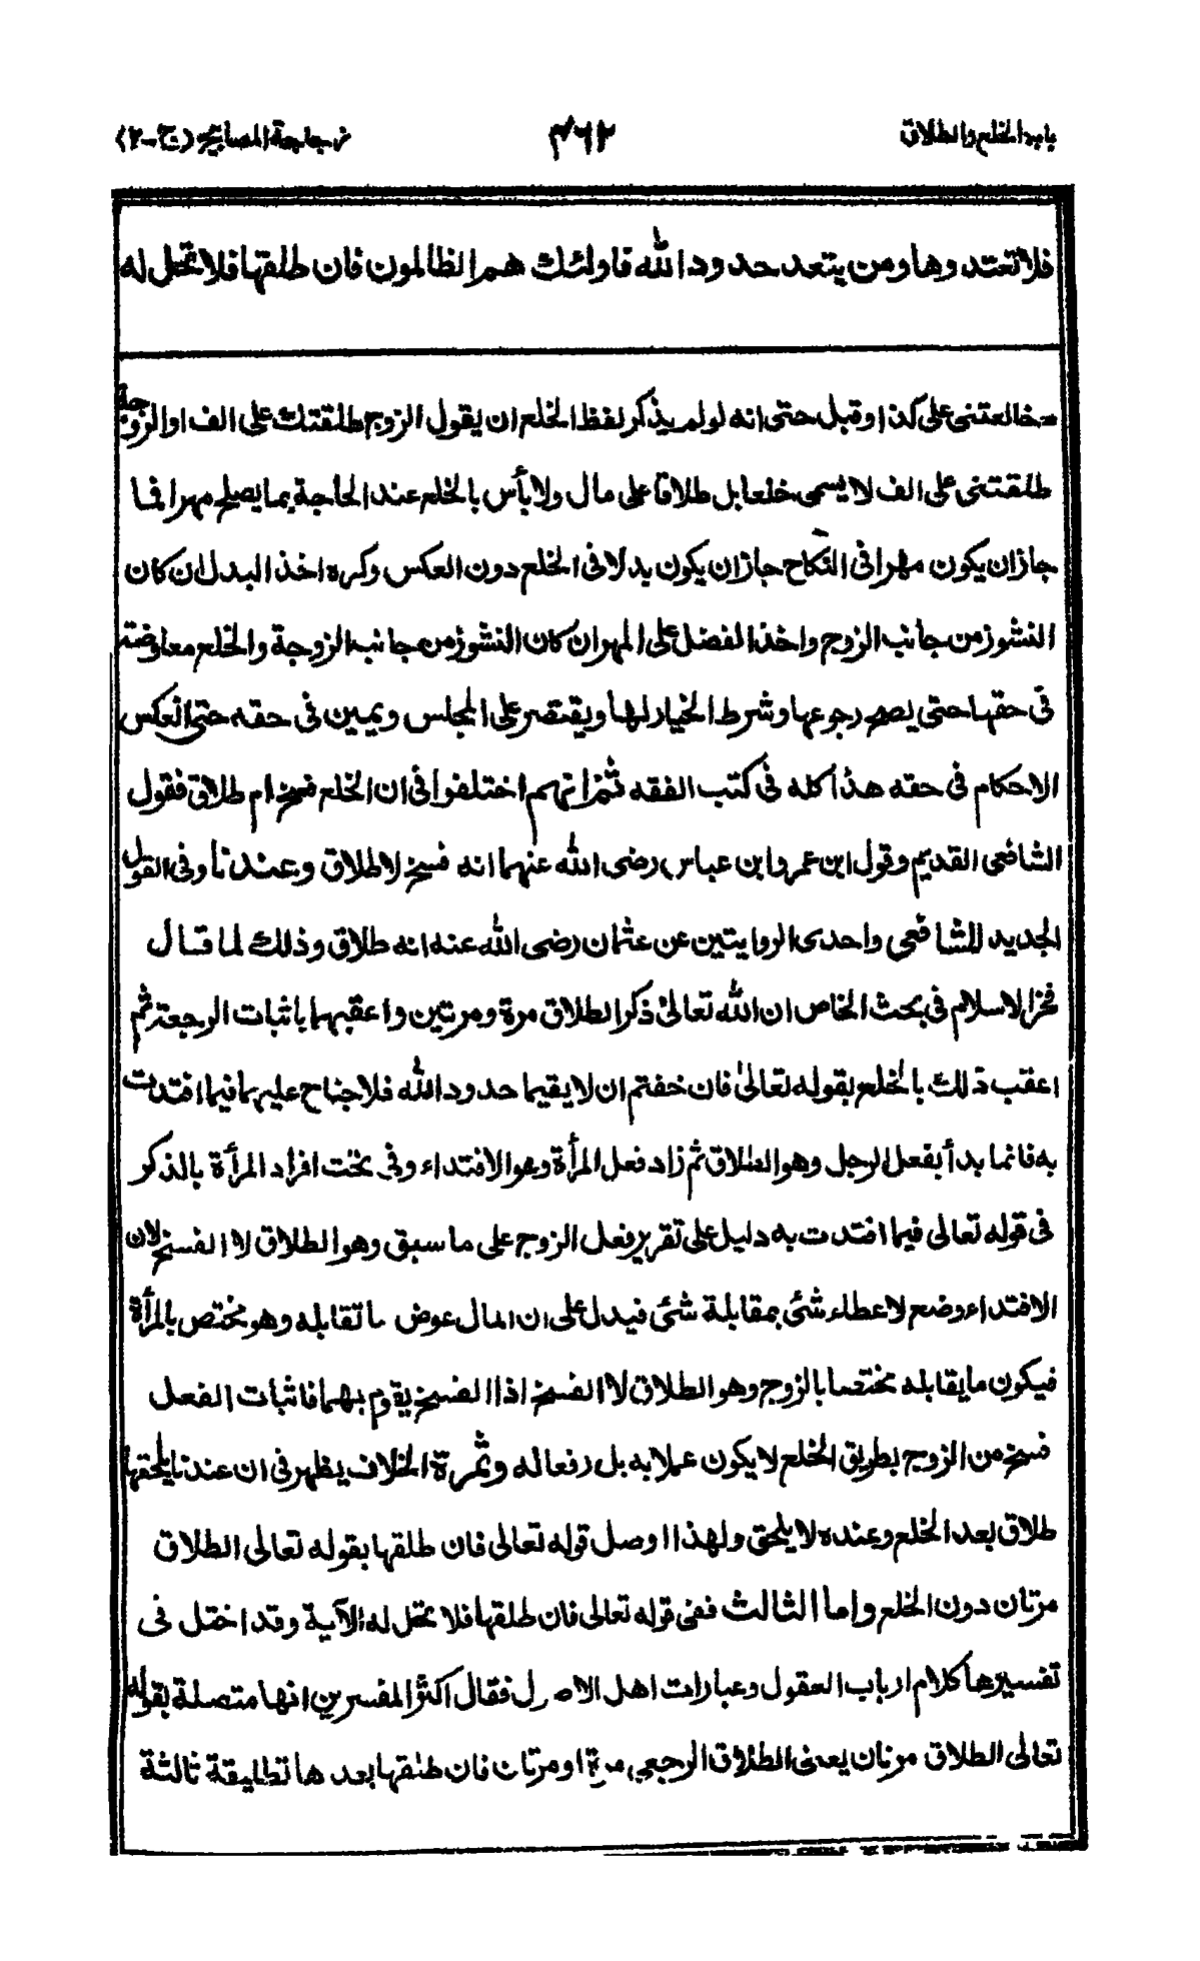 باب الخلع والطلاق ٤٦٢ زجاجة المصابيح (ج-٢)
فلا تعتدوها ومن يتعد حدود الله فاولئك هم الظالمون فان طلقها فلا تحل له
خالعتنى على كذا وقبل حتى انه لو لم يذكر لفظ الخلع ان يقول الزوج طلقتك على الف او الزوجة
طلقتنى على الف لا يسمى خلعا بل طلاقا على مال ولا بأس بالخلع عند الحاجة بما يصلح مهرا فما
جاز ان يكون مهرا فى النكاح جاز ان يكون بدلا فى الخلع دون العكس وكره اخذ البدل ان كان
النشوز من جانب الزوج واخذ الفضل على المهر ان كان النشوز من جانب الزوجة والخلع معاوضة
فى حقها حتى يصح رجوعها وشرط الخيار لها ويقتصر على المجلس ويمين فى حقه حتى انعكس
الاحكام فى حقه هذا كله فى كتب الفقه ثم انهم اختلفوا فى ان الخلع فسخ ام طلاق فقول
الشافعى القديم وقول ابن عمر وابن عباس رضى الله عنهما انه فسخ لا طلاق وعندنا وفى القول
الجديد للشافعى واحدى الروايتين عن عثمان رضى الله عنه انه طلاق وذلك لما قال
فخر الاسلام فى بحث الخاص ان الله تعالىٰ ذكر الطلاق مرة ومرتين واعقبهما باثبات الرجعة ثم
اعقب ذلك بالخلع بقوله تعالىٰ فان خفتم ان لا يقيما حدود الله فلا جناح عليهما فيما افتدت
به فانما بدأ بفعل الرجل وهو الطلاق ثم زاد فعل المرأة وهو الافتداء وفى تحت افراد المرأة بالذكر
فى قوله تعالى فيما افتدت به دليل على تقرير فعل الزوج على ما سبق وهو الطلاق لا الفسخ لان
الافتداء وضع لاعطاء شئى بمقابلة شئى فيدل على ان المال عوض ما تقابله وهو مختص بالمرأة
فيكون ما يقابله مختصا بالزوج وهو الطلاق لا الفسخ اذا الفسخ يقوم بهما فاثبات الفعل
فسخ من الزوج بطريق الخلع لا يكون عملا به بل رفعا له وثمرة الخلاف يظهر فى ان عندنا يلحقها
طلاق بعد الخلع وعنده لا يلحق ولهذا اوصل قوله تعالى فان طلقها بقوله تعالى الطلاق
مرتان دون الخلع واما الثالث ففى قوله تعالى فان طلقها فلا تحل له الآية وقد اختل فى
تفسيرها كلام ارباب العقول وعبارات اهل الاصول فقال اكثر المفسرين انها متصلة بقوله
تعالى الطلاق مرتان يعنى الطلاق الرجعى مرة او مرتان فان طلقها بعدها تطليقة ثالثة